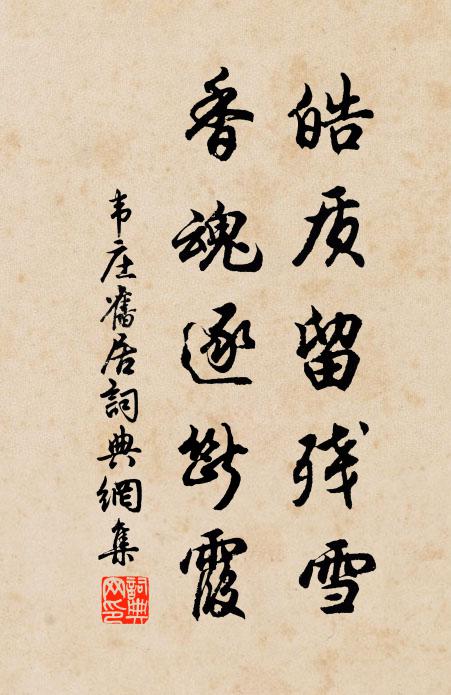 皓质留残雪
香魂逐断霞
韦庄舊居詞典網集
詞典网印